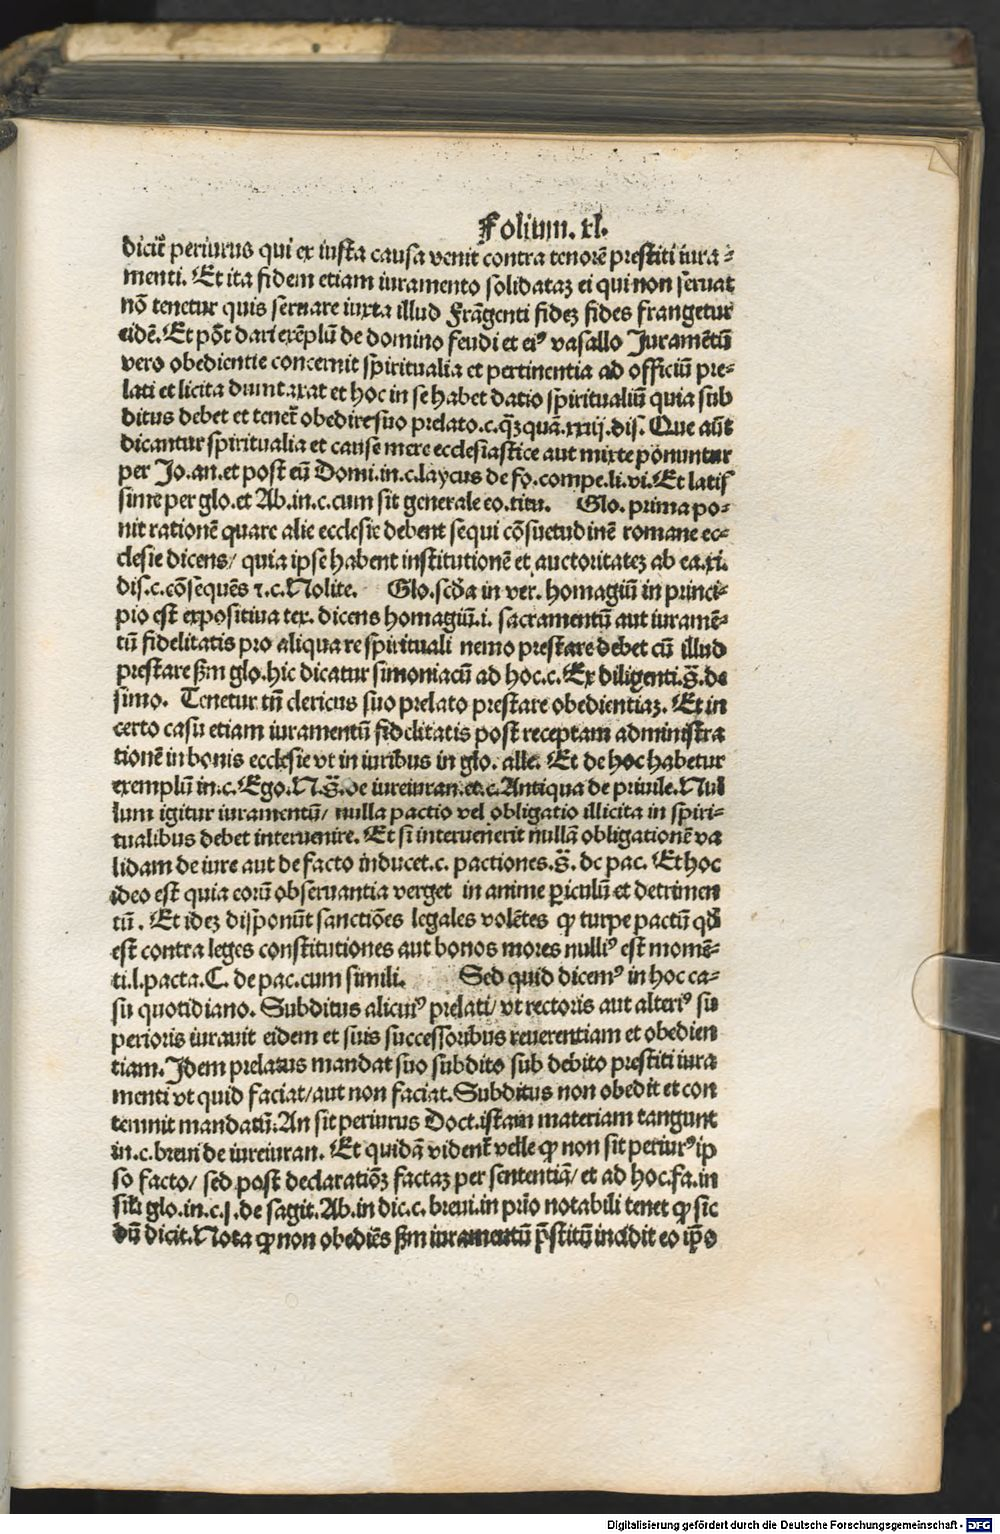 Folium. xl.
dicit̄ periurus qui ex iusta causa venit contra tenorē prestiti iura⸗
menti. Et ita fidem etiam iuramento solidataꝫ ei qui non seruat
nō tenetur quis seruare iuxta illud Frāgenti fideꝫ fides frangetur
eidē. Et pōt dari exēplū de domino feudi et eiꝰ vasallo Iuramētū
vero obedientie concernit spiritualia et pertinentia ad officiū pre⸗
lati et licita duntaxat et hoc in se habet datio spiritualiū quia sub
ditus debet et tenet̄ obedire suo prelato.c.qꝫquā.xxiij.dis. Que aūt
dicantur spiritualia et cause mere ecclesiastice aut mixte ponuntur
per Jo.an.et post eū Domi.in.c.laycus de fo.compe.li.vi. Et latis
sime per glo.et Ab.in.c.cum sit generale eo.titu. Glo. prima po⸗
nit rationē quare alie ecclesie debent sequi cōsuetudinē romane ec⸗
clesie dicens/ quia ipse habent institutionē et auctoritateꝫ ab ea.xi.
dis.c.cōsequēs ⁊.c.Nolite. Glo.scđa in ver. homagiū in princi⸗
pio est expositiua tex. dicens homagiū.i. sacramentū aut iuramē⸗
tū fidelitatis pro aliqua re spirituali nemo prestare debet cū illud
prestare ẜm glo.hic dicatur simoniacū ad hoc.c. Ex diligenti.s̄. de
simo. Tenetur tn̄ clericus suo prelato prestare obedientiaꝫ. Et in
certo casu etiam iuramentū fidelitatis post receptam administra
tionē in bonis ecclesie vt in iuribus in glo. alle. Et de hoc habetur
exemplū in.c. Ego.N.s̄.de iureiuran.et.c.Antiqua de priuile.Nul
lum igitur iuramentū/ nulla pactio vel obligatio illicita in spiri⸗
tualibus debet interuenire. Et si interuenerit nullā obligationē va
lidam de iure aut de facto inducet.c. pactiones.s̄. de pac. Et hoc
ideo est quia eorū obseruantia verget in anime ꝑiculū et detrimen
tū. Et ideꝫ disponūt sanctiōes legales volētes ꝙ turpe pactū qđ
est contra leges constitutiones aut bonos mores nulliꝰ est momē⸗
ti.l.pacta.C. de pac.cum simili. Sed quid dicemꝰ in hoc ca⸗
su quotidiano. Subditus alicuiꝰ prelati/ vt rectoris aut alteriꝰ su
perioris iurauit eidem et suis successoribus reuerentiam et obedien
tiam. Idem prelatus mandat suo subdito sub debito prestiti iura
menti vt quid faciat/aut non faciat. Subditus non obedit et con
temnit mandatū. An sit periurus Doct.istam materiam tangunt
in.c.breui de iureiuran. Et quidā vident̄ velle ꝙ non sit periurꝰ ip
so facto/ sed post declaratiōꝫ factaꝫ per sententiā/ et ad hoc.fa.in
sil̄i glo.in.c.j.de sagit.Ab.in dic.c. breui.in prīo notabili tenet ꝙ sic
dū dicit.Nota ꝙ non obediēs ẜm iuramentū p̄stitū incidit eo ip̄o
Digitalisierung gefördert durch die Deutsche Forschungsgemeinschaft - DFG